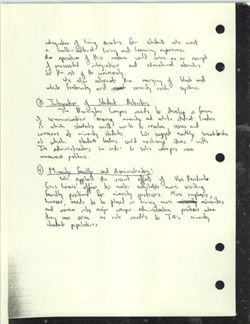 integration of living quarters for students who want
a multi-cultural living and learning experience.
The operation of this nature could serve as an example
of successful integration and educational benefits
for the rest of the university.
We also advocate the merging of black and
white fraternity and sorority systems.
③ Integration of Student Activities
The Bloomington Campus needs to develop a form
of communication among minority and white student leaders
in which students could unite to resolve issues and
concerns of minority students. We suggest monthly breakfasts
at which student leaders could exchange ideas with
IU administrators in order to solve campus race
awareness problems.
④ Minority Faculty and Administrators:
We applaud the recent efforts of Vice President
Gros Louis' office to make available more visiting
faculty positions for minority professors. More emphasis,
however, needs to be placed on having more minorities
and women into major campus administrative positions where
they can serve as role models to IU's minority
student populations.